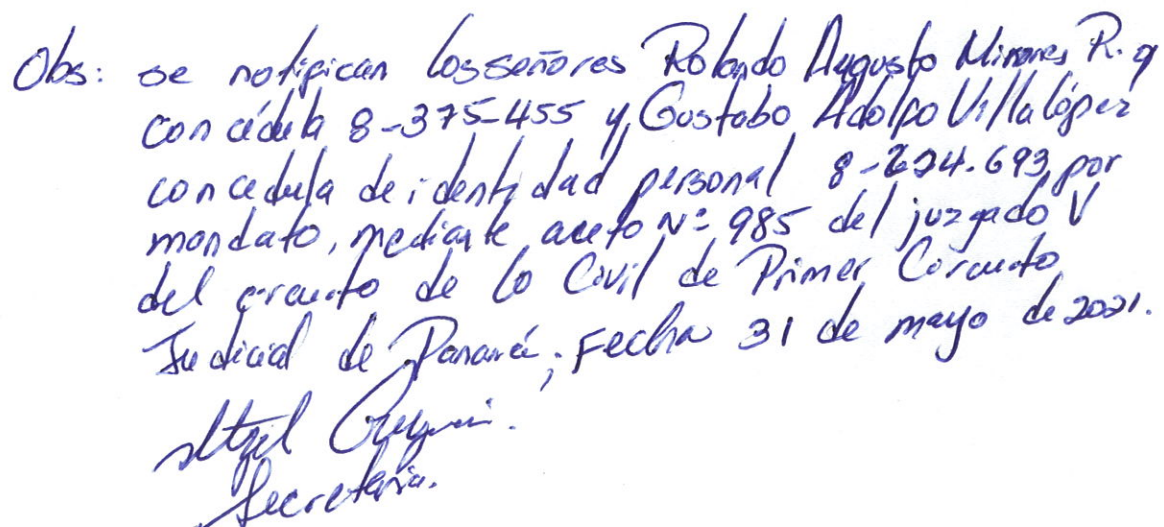 Obs: se notifican los señores Rolando Augusto Minones R. q
con cédula 8-375-455 y Gustabo Adolfo Villalópez
con cedula de identidad personal 8-224.693 por
mandato, mediante aucto Nº 985 del juzgado V
del circuito de lo Civil de Primer Circuito
Judicial de Panamá; Fecha 31 de mayo de 2021.
Itzel
Secretaria.